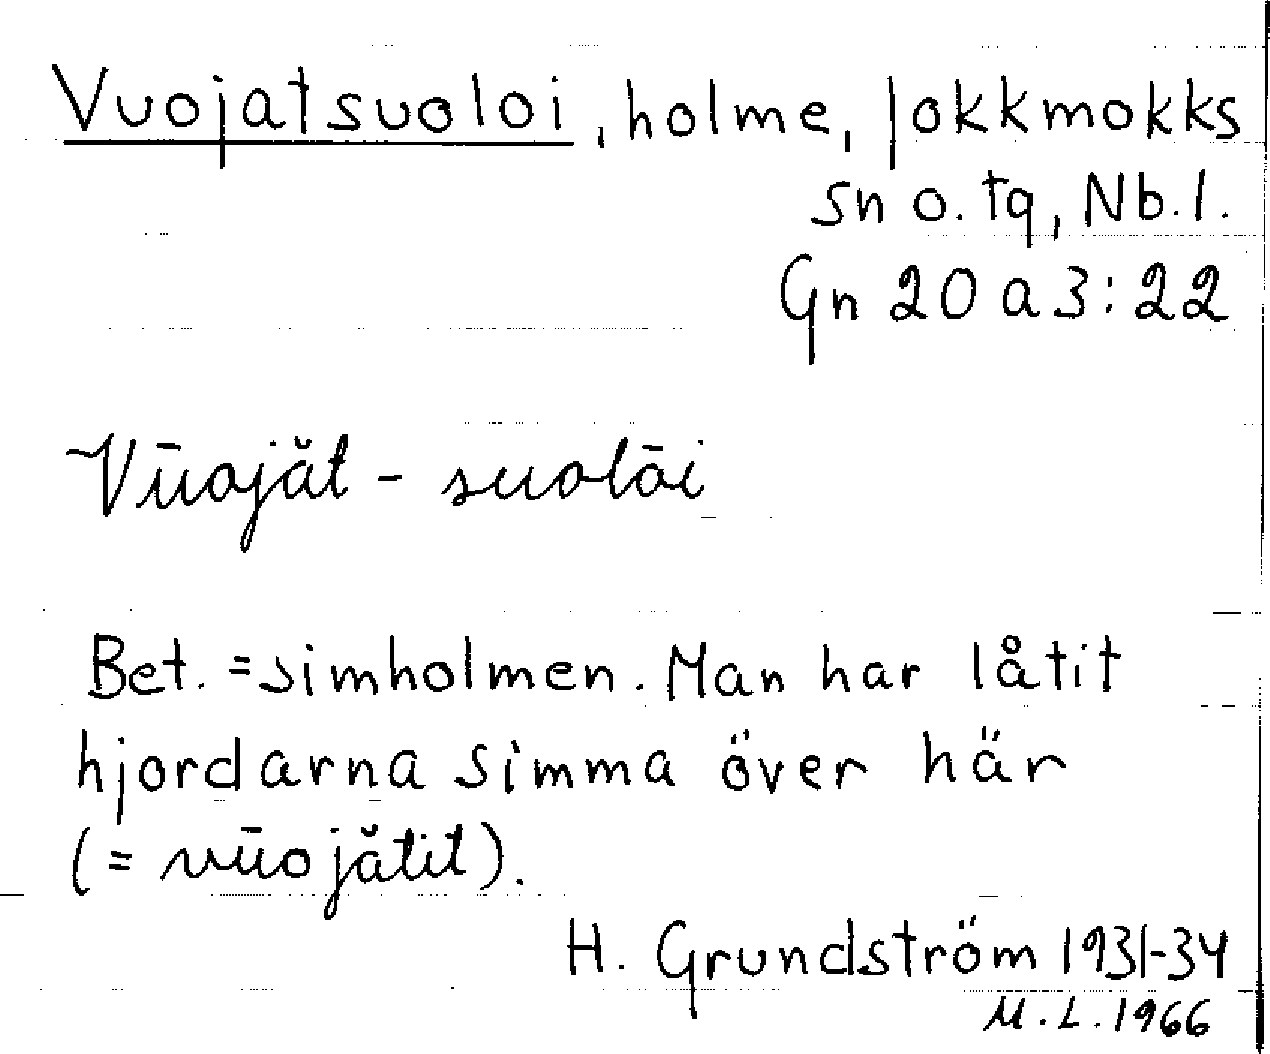 Vuojatsuoloi, holme, Jokkmokks
sn o. tg, Nb. l.
Gn 20 a 3:22
Vūojăt - suolāi
Bet. = simholmen. Man har låtit
hjordarna simma över här
(= vūojătit).
H. Grundström 1931-34
M.L. 1966